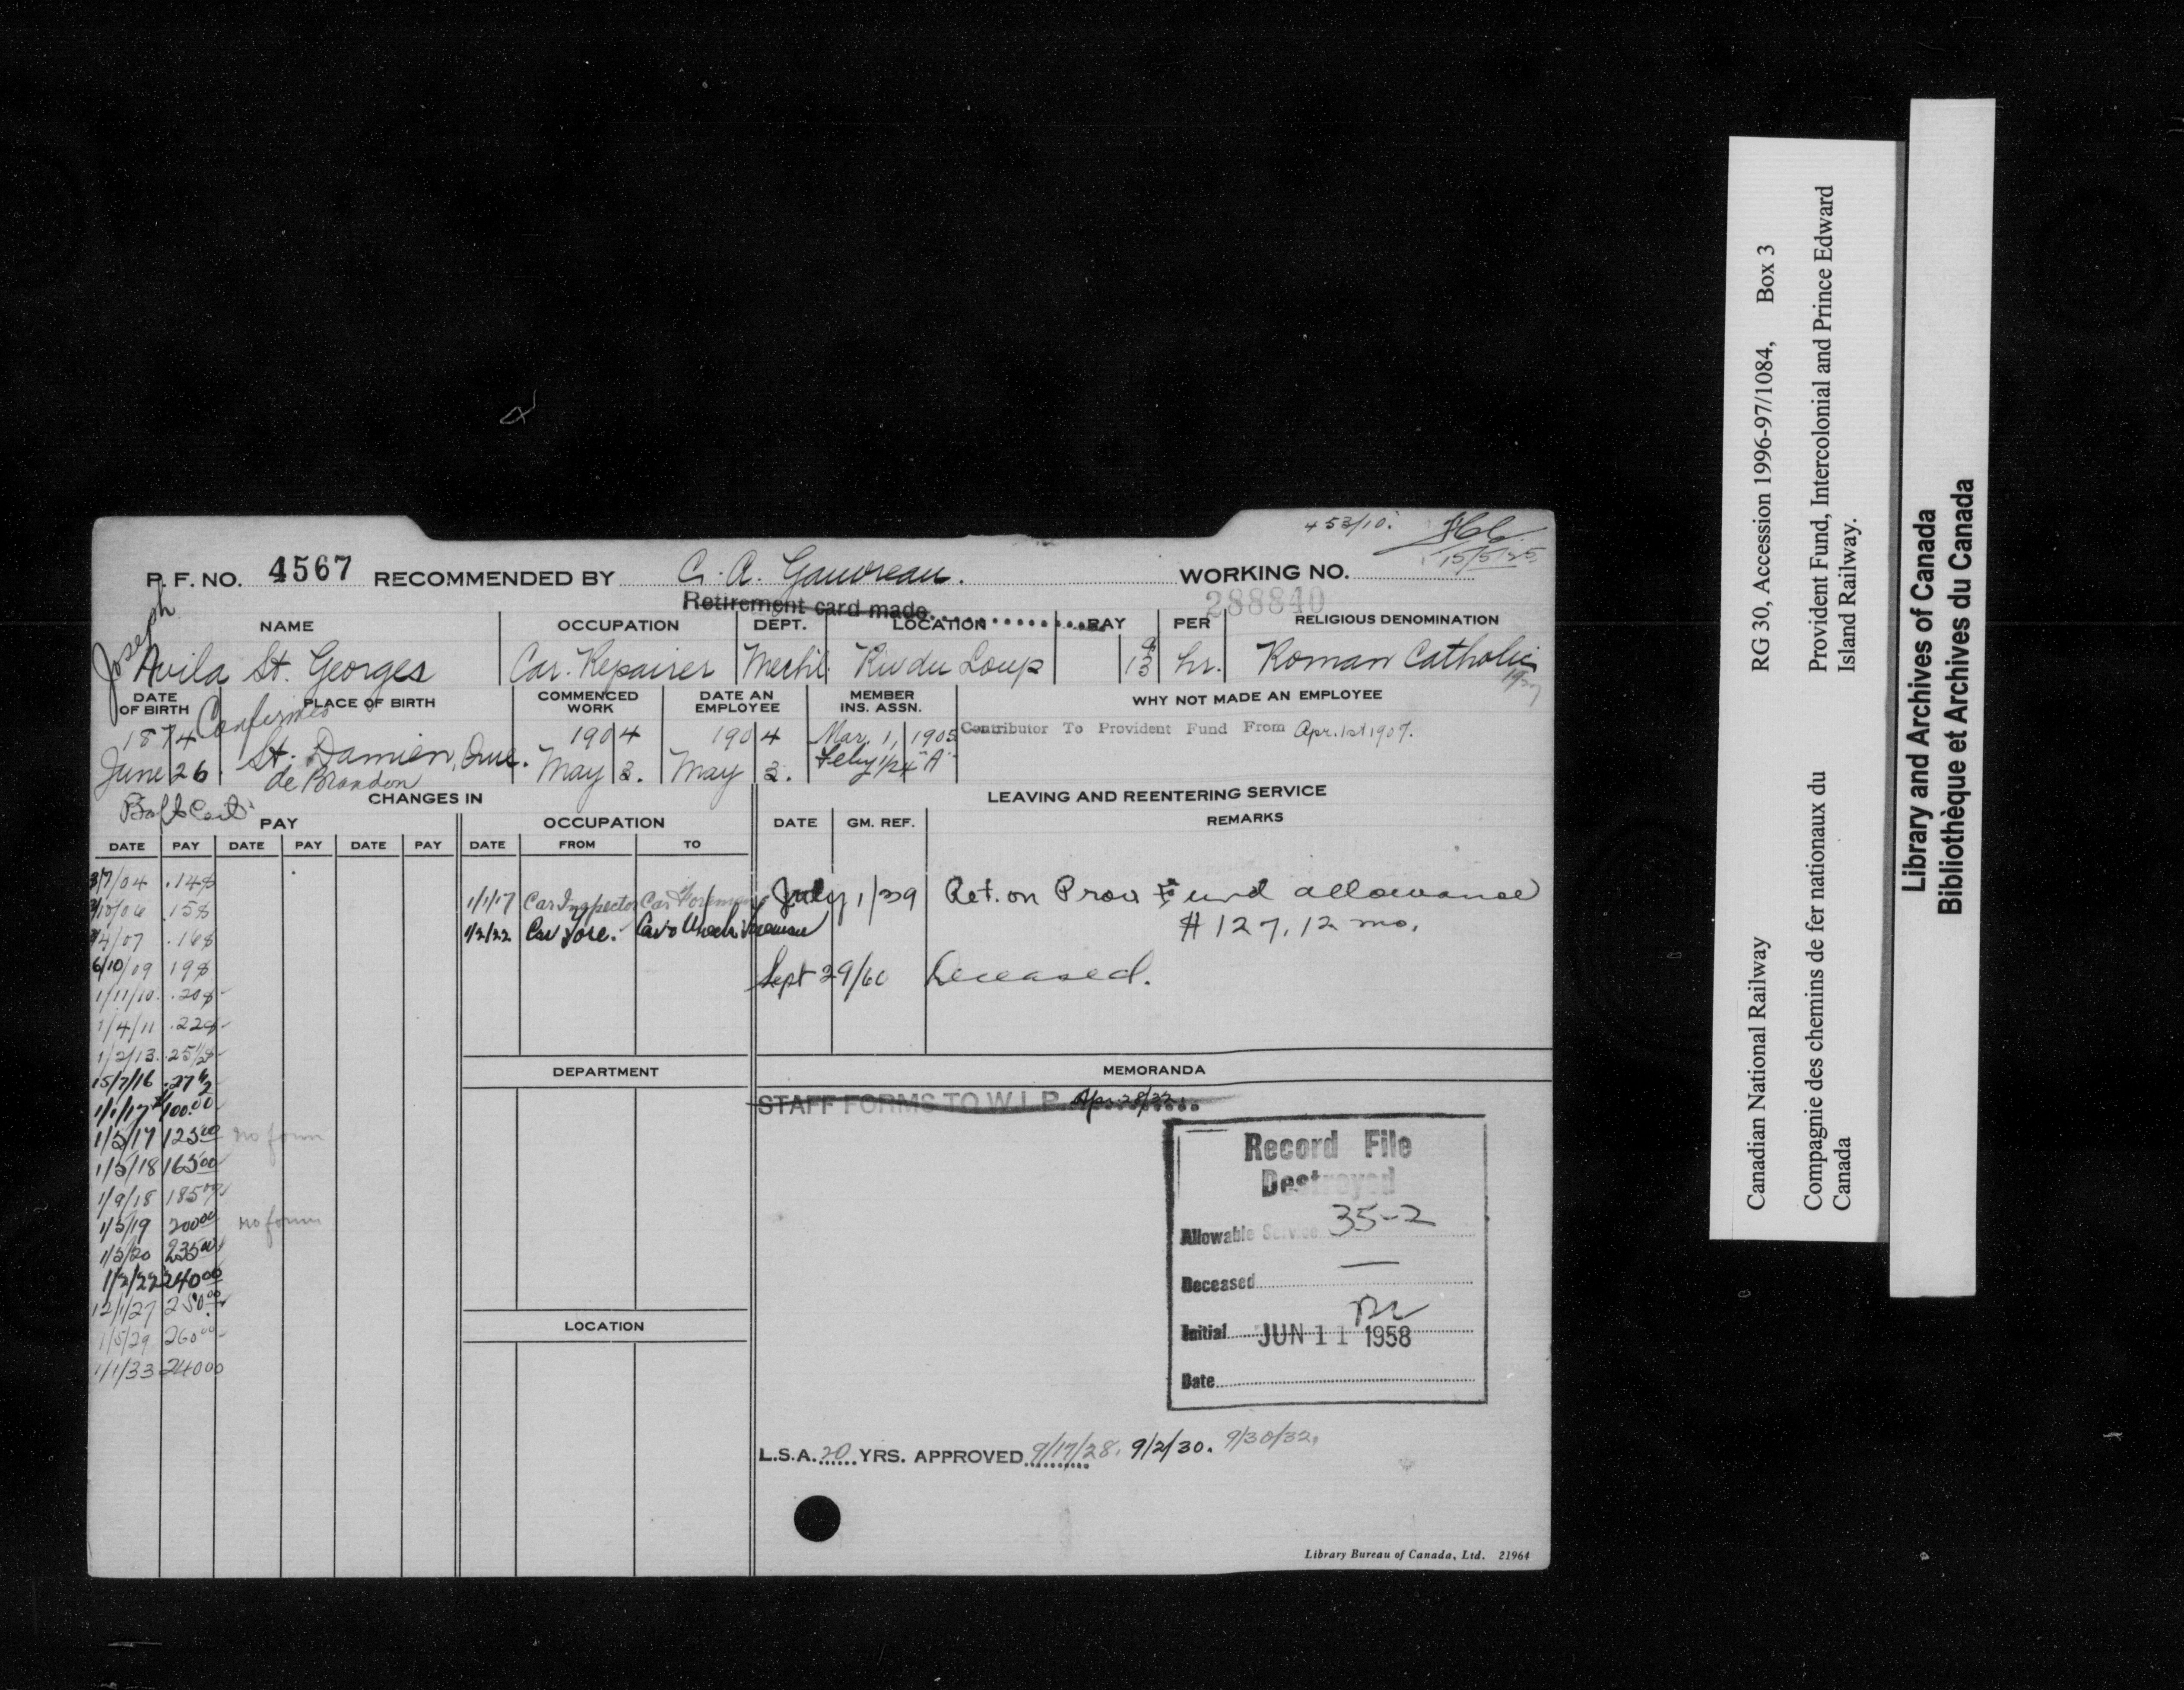 + 53/10.
15/5/25
P. F. NO. 4567 RECOMMENDED BY C. A. Gauvreau. WORKING NO.
Retirement card made 288840
NAME OCCUPATION DEPT. LOCATION PAY PER RELIGIOUS DENOMINATION
Joseph
Avila St. Georges Car. Repairer Mechl. Riv du Loup 13 hr. Roman Catholic
DATE OF BIRTH PLACE OF BIRTH COMMENCED WORK DATE AN EMPLOYEE MEMBER INS. ASSN. WHY NOT MADE AN EMPLOYEE
1874 Confirmed 1904 1904 Mar. 1, 1905 Contributor To Provident Fund From Apr. 1st 1907.
June 26. St. Damien, Que. May 3. May 3. Feby 1/24 "A"
de Brandon
CHANGES IN LEAVING AND REENTERING SERVICE
PAY OCCUPATION DATE GM. REF. REMARKS
DATE PAY DATE PAY DATE PAY DATE FROM TO
3/7/04 .14¢
1/1/17 Car Inspector Car Foreman July 1/39 Ret. on Prov Fund allowance
.15¢
1/2/22 Car Fore. Foreman $127.12 mo.
/4/07 .16¢
6/10/09 19¢ Sept 29/60 Deceased.
1/11/10. .20¢
1/4/11 .22¢
1/2/13. .25½¢
15/7/16 .27½
1/1/17 $100.00
1/5/17 125.00 no form
1/5/18 165.00
1/9/18 185.00
1/5/19 200.00 no form
1/5/20 235.00
1/2/22 240.00
12/1/27 250.00
1/5/29 260.00
1/1/33 240.00
DEPARTMENT MEMORANDA
STAFF FORMS TO W.I.P. Apr. 28/22
Record File
Destroyed
Allowable Service 35-2
Deceased —
Initial JUN 11 1958
Date
LOCATION
L.S.A. 20 YRS. APPROVED 9/17/28. 9/2/30. 9/30/32.
Library Bureau of Canada, Ltd. 21964
Canadian National Railway RG 30, Accession 1996-97/1084, Box 3
Compagnie des chemins de fer nationaux du Canada
Provident Fund, Intercolonial and Prince Edward Island Railway.
Library and Archives of Canada
Bibliothèque et Archives du Canada